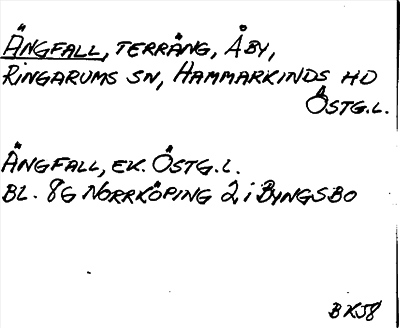 ÄNGFALL, TERRÄNG, ÅBY,
RINGARUMS SN, HAMMARKINDS HD
ÖSTG.L.
ÄNGFALL, EK. ÖSTG.L.
BL. 8G NORRKÖPING 2 i BYNGSBO
BXJ8